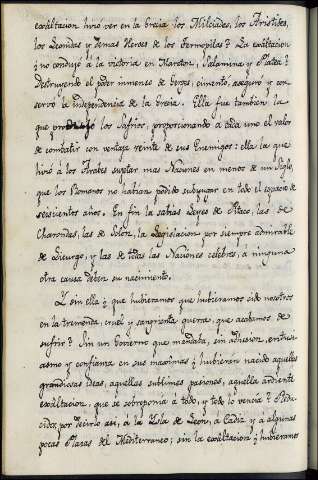 exâltacion hizo ver en la Grecia los Milciades, los Aristides,
los Leonidas y demas Heroes de los Termopilas? La exâltacion
¿no condujo á la victoria en Maraton, Salamina y Platea?
Destruyendo el poder inmenso de Gerges, cimentó, aseguró y con-
servó la independencia de la Grecia. Ella fue tambien la
que produjo los Safrios, proporcionando á cada uno el valor
de combatir con ventaja veinte de sus Enemigos: ella la que
hizo á los Arabes sujetar mas Naciones en menos de un Siglo,
que los Romanos no habian podido subyugar en todo el espacio de
seiscientos años. En fin la sabias Leyes de Pitaco, las de
Charondas, las de Solón, la Legislacion por siempre admirable
de Licurgo, y las de todas las Naciones celebres, á ninguna
otra causa deben su nacimiento.
Y sin ella ¿que hubieramos que hubieramos sido nosotros
en la tremenda, cruel y sangrienta guerra, que acabamos de
sufrir? Sin un Govierno que mandaba, sin adhesion, entusi-
asmo y confianza en sus maximas ¿hubieren nacido aquellas
grandiosas ideas, aquellas sublimes pasiones, aquella ardiente
exâltacion, que se sobreponia á todo, y todo lo vencia? Redu-
cidos, por decirlo asi, á la Ysla de Leon, á Cadiz y á algunas
pocas Plazas del Mediterraneo; sin la exâltacion ¿hubieramos